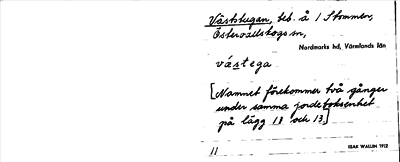 Väststugan, beb. å 1 Stommen,
Östervallskogs sn,
Nordmarks hd, Värmlands län
västega
[Namnet förekommer två gånger
under samma jordeboksenhet
på lägg 13 och 13.]
11
ISAK WALLIN 1912